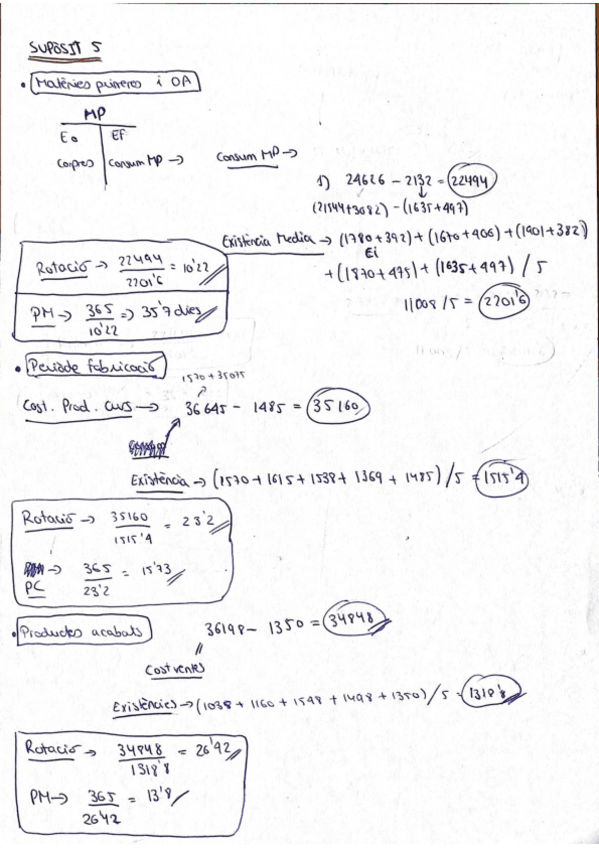 SUPÒSIT 5
• Matèries primeres i OA
MP
Eo EF
Compres Consum MP →
Consum MP →
1) 24626 - 2132 = 22494
(21544+3082) - (1635+497)
Existència Media → (1780+392) + (1670+406) + (1901+382)
Ei
+ (1870+475) + (1635+497) / 5
11008 / 5 = 2201'6
Rotació → 22494 / 2201'6 = 10'22
PM → 365 / 10'22 => 35'7 dies
• Període fabricació
1570 + 35075
Cost. Prod. curs → 36645 - 1485 = 35160
Existència → (1570 + 1615 + 1538 + 1369 + 1485) / 5 = 1515'4
Rotació → 35160 / 1515'4 = 23'2
→ 365 / 23'2 = 15'73
PC
• Productes acabats
36198 - 1350 = 34848
Cost ventes
Existències → (1038 + 1160 + 1548 + 1498 + 1350) / 5 = 1318'8
Rotació → 34848 / 1318'8 = 26'42
PM → 365 / 26'42 = 13'8